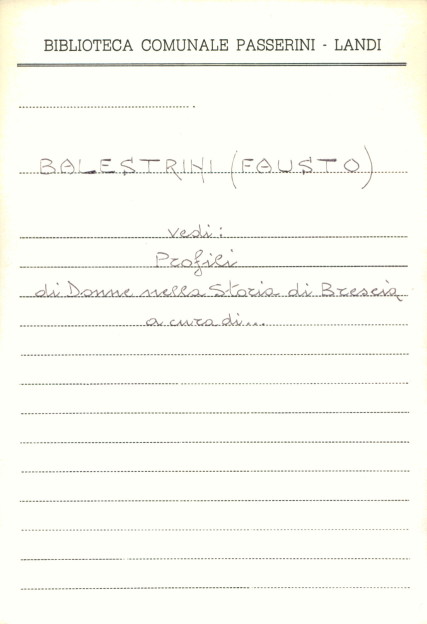 BIBLIOTECA COMUNALE PASSERINI - LANDI
BALESTRINI (FAUSTO)
vedi:
Profili
di Donne nella Storia di Brescia
a cura di...